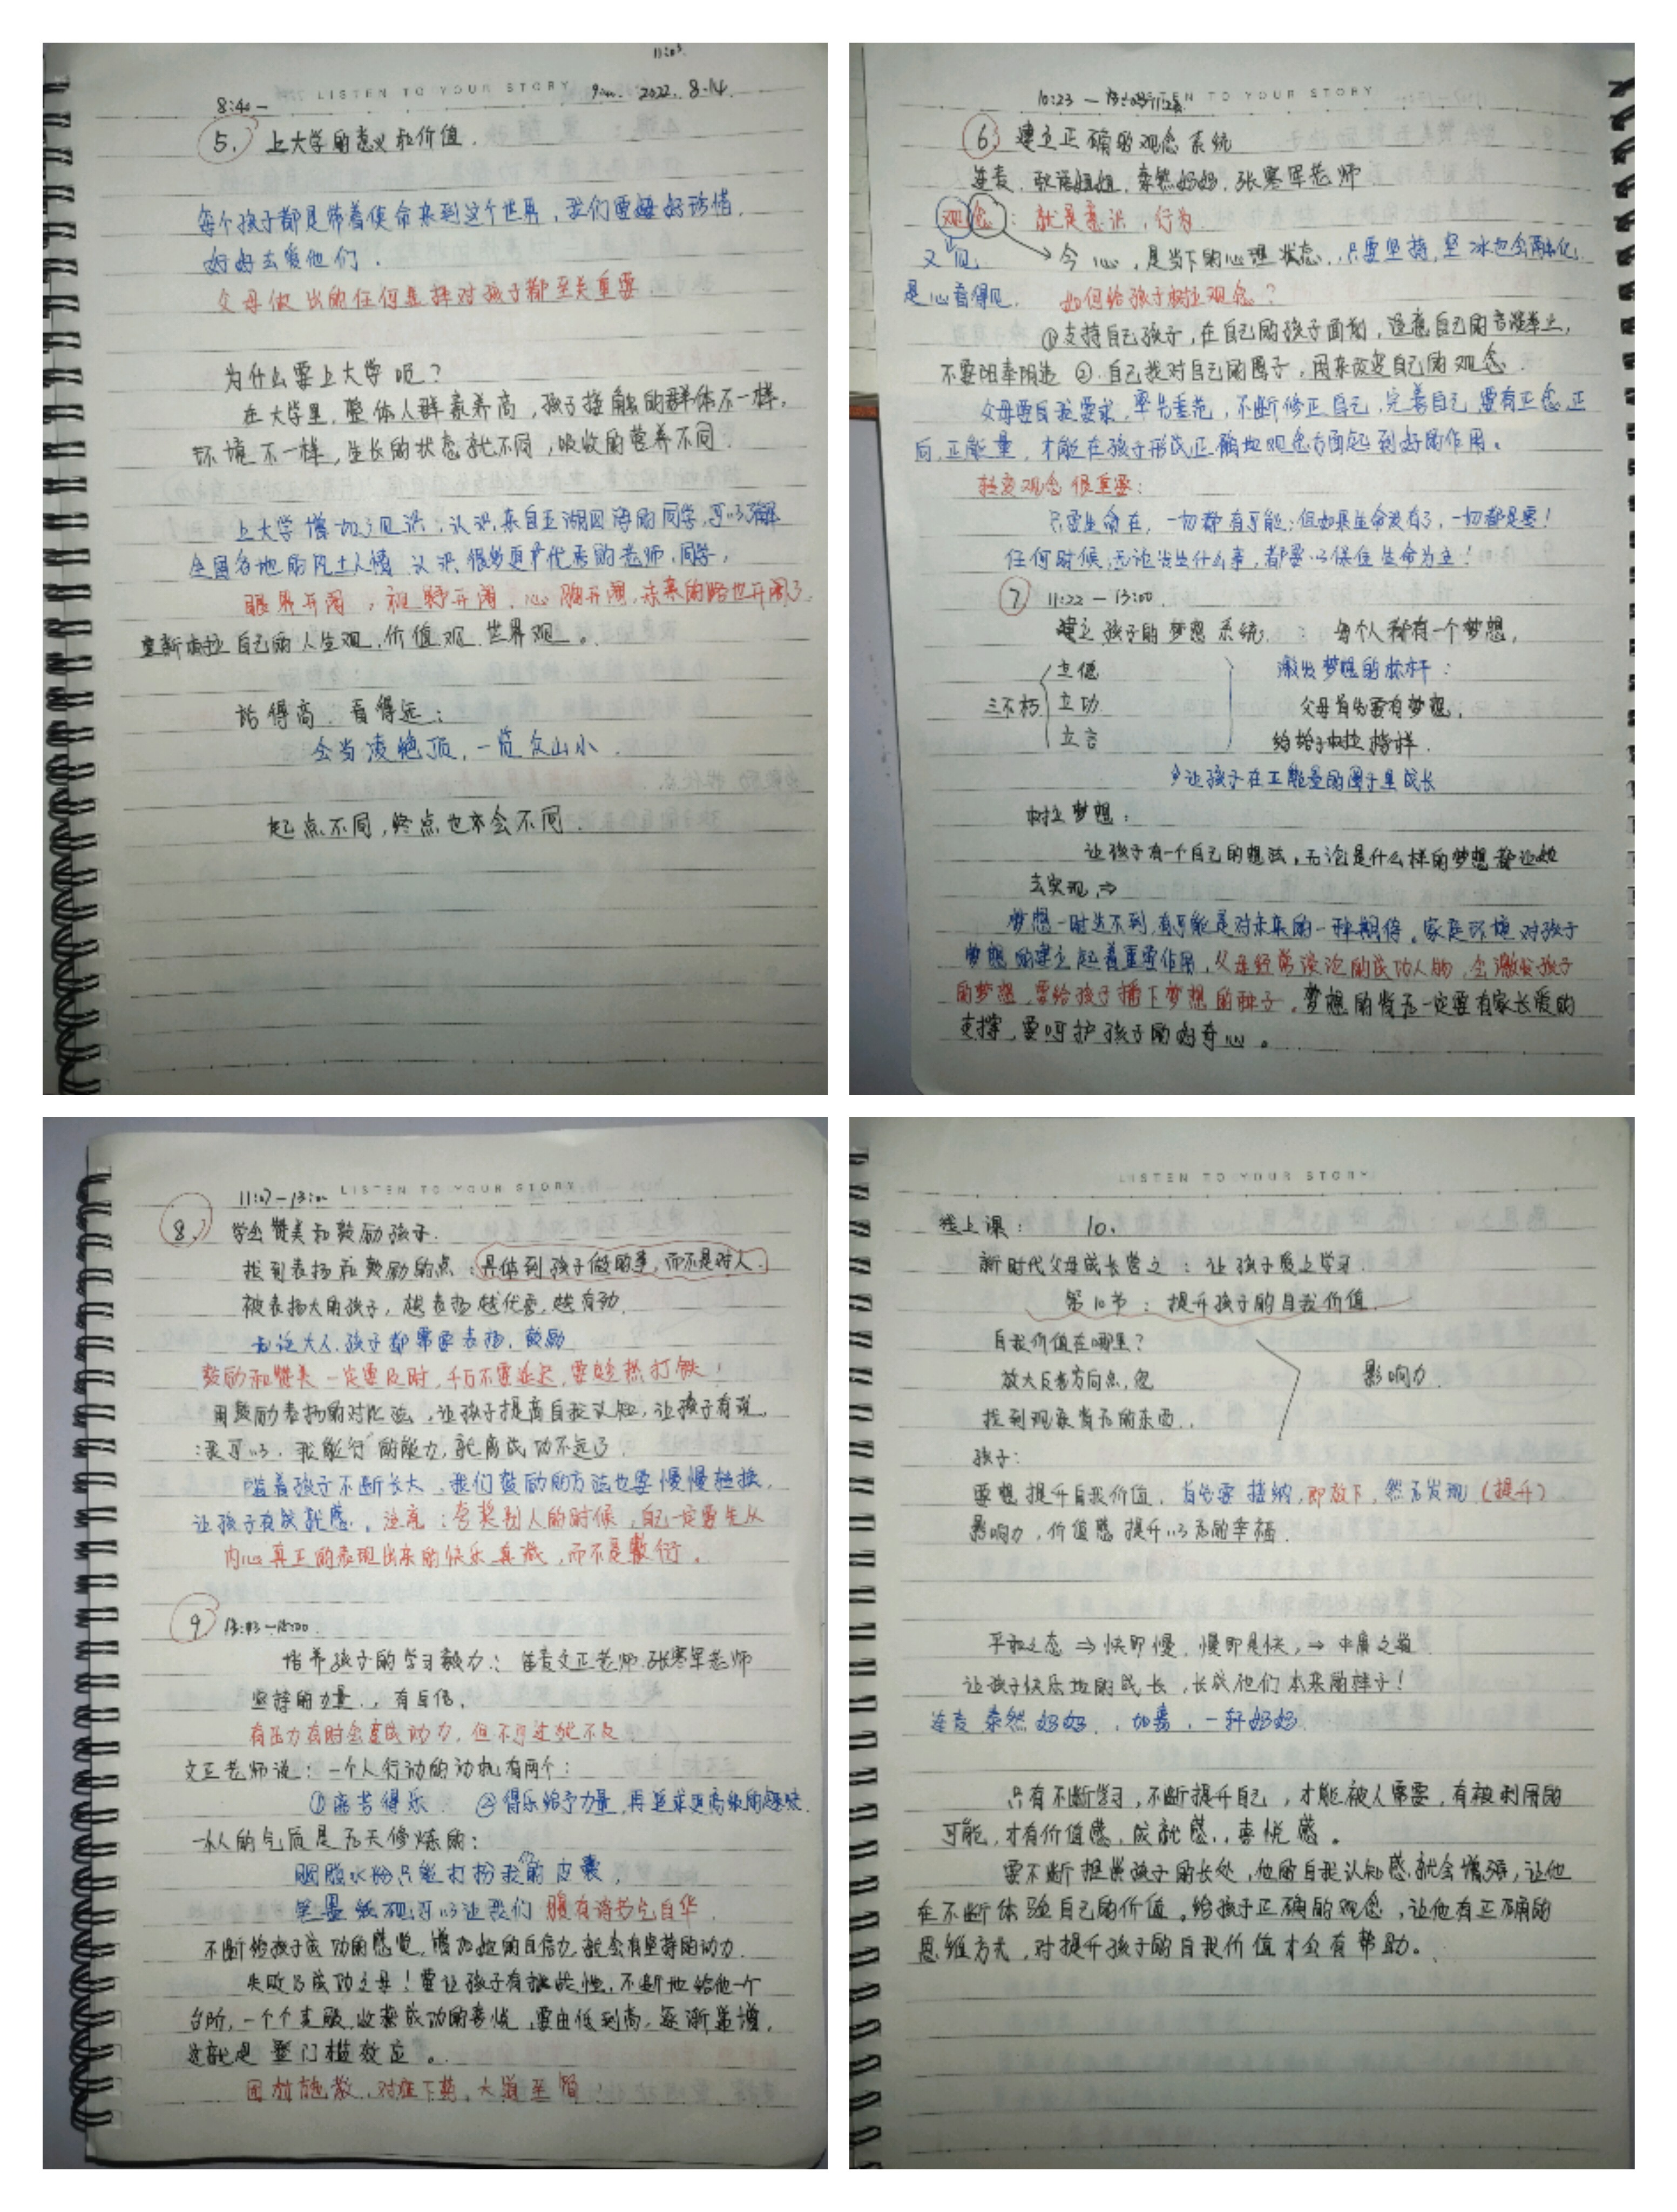 11:03
LISTEN TO YOUR STORY
8:40— 2022. 8.14.
5. 上大学的意义和价值.
每个孩子都是带着使命来到这个世界,我们要好好珍惜.
好好去爱他们.
父母做出的任何选择对孩子都至关重要.
为什么要上大学呢?
在大学里,整体人群素养高,孩子接触的群体不一样,
环境不一样,生长的状态就不同,吸收的营养不同.
上大学增加了见识,认识来自五湖四海的同学,可以了解
全国各地的风土人情 认识很多更优秀的老师.同学,
眼界开阔,视野开阔.心胸开阔,未来的路也开阔了.
重新树立自己的人生观,价值观.世界观。
站得高.看得远:
会当凌绝顶,一览众山小.
起点不同,终点也亦会不同.
LISTEN TO YOUR STORY
10:23—
6. 建立正确的观念系统
连麦.姐姐,泰然妈妈,张寒军老师
观念:就是意识,行为.
又见 → 今心,是当下的心理状态.只要坚持,坚冰也会融化.
是心看得见. 如何给孩子树立观念?
①支持自己孩子,在自己的孩子面前,注意自己的言谈举止,
不要阳奉阴违 ②.自己找对自己的圈子,因来改变自己的观念.
父母要自我要求,率先垂范,不断修正自己,完善自己 要有正念,正
向,正能量,才能在孩子形成正确地观念方面起到好的作用。
转变观念很重要:
只要生命在,一切都有可能;但如果生命没有了,一切都是零!
任何时候,无论发生什么事,都要以保住生命为主!
7. 11:22—13:00.
建立孩子的梦想系统:每个人都有一个梦想,
立德 激发梦想的标杆:
三不朽 立功 父母首先要有梦想,
立言 给孩子树立榜样.
让孩子在正能量的圈子里成长
树立梦想:
让孩子有一个自己的想法,无论是什么样的梦想都让她
去实现,⇒
梦想一时达不到,有可能是对未来的一种期待。家庭环境对孩子
梦想的建立起着重要作用,父母经常谈论的成功人物,会激发孩子
的梦想,要给孩子播下梦想的种子。梦想的背后一定要有家长爱的
支撑,要呵护孩子的好奇心。
LISTEN TO YOUR STORY
11:07—13:00
8. 学会赞美和鼓励孩子.
找到表扬和鼓励的点:具体到孩子做的事,而不是对人.
被表扬大的孩子,越表扬越优秀,越有劲.
无论大人.孩子都需要表扬,鼓励
鼓励和赞美一定要及时,千万不要延迟,要趁热打铁!
用鼓励表扬的对比法,让孩子提高自我认知,让孩子有说,
:我可以.我能行的能力,就离成功不远了.
随着孩子不断长大,我们鼓励的方法也要慢慢转换,
让孩子有成就感。注意:夸奖别人的时候,自己一定要先从
内心真正的表现出来的快乐真诚,而不是敷衍。
9 13:43—15:00
培养孩子的学习毅力:连麦文正老师.张寒军老师
坚持的力量,有自信,
有压力有时会变成动力,但不可过犹不及
文正老师说:一个人行动的动机有两个:
①离苦得乐 ②得乐给予力量,再追求更高级的趣味.
一个人的气质是后天修炼的:
胭脂水粉只能打扮我的皮囊,
笔墨纸砚可以让我们腹有诗书气自华.
不断给孩子成功的感觉,增加她的自信力,就会有坚持的动力.
失败乃成功之母!要让孩子有挑战性,不断地给他一个
台阶,一个个克服,收获成功的喜悦,要由低到高,逐渐递增,
这就是登门槛效应。
因材施教,对症下药,大道至简!
LISTEN TO YOUR STORY
线上课: 10.
新时代父母成长营之:让孩子爱上学习.
第10节:提升孩子的自我价值.
自我价值在哪里?
放大反省方向点, 影响力.
找到现象背后的东西..
孩子:
要想提升自我价值,首先要接纳,即放下,然后发现(提升)
影响力,价值感 提升以后的幸福.
平和之态⇒快即慢,慢即是快,→中庸之道.
让孩子快乐地的成长,长成他们本来的样子!
连麦 泰然妈妈.,一轩妈妈.
只有不断学习,不断提升自己,才能被人需要,有被利用的
可能,才有价值感,成就感,喜悦感。
要不断提供孩子的长处,他的自我认知感就会增强,让他
在不断体验自己的价值。给孩子正确的观念,让他有正确的
思维方式,对提升孩子的自我价值才会有帮助。